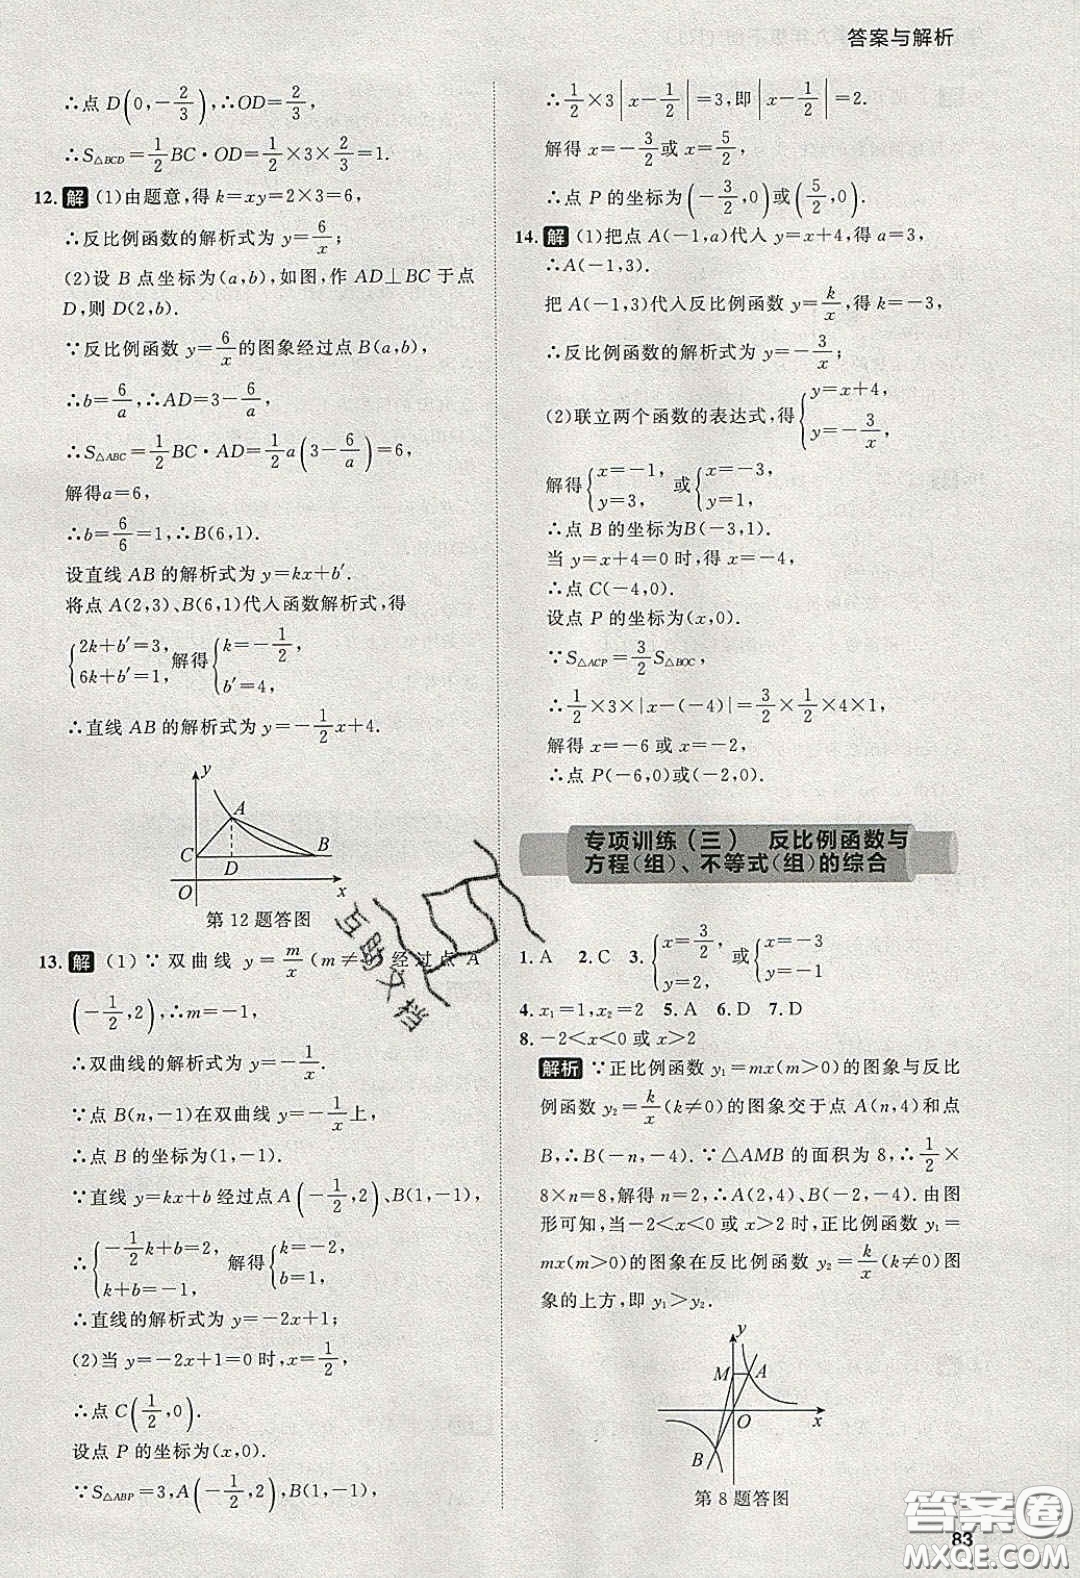 答案与解析
∴点 D(0,-2/3),∴OD=2/3,
∴S△BCD=1/2BC·OD=1/2×3×2/3=1.
12. 解 (1)由题意,得 k=xy=2×3=6,
∴反比例函数的解析式为 y=6/x;
(2)设 B 点坐标为(a,b),如图,作 AD⊥BC 于点
D,则 D(2,b).
∵反比例函数 y=6/x的图象经过点 B(a,b),
∴b=6/a,∴AD=3-6/a,
∴S△ABC=1/2BC·AD=1/2a(3-6/a)=6,
解得a=6,
∴b=6/6=1,∴B(6,1).
设直线 AB 的解析式为 y=kx+b′.
将点 A(2,3)、B(6,1)代入函数解析式,得
{2k+b′=3, 6k+b′=1, 解得{k=-1/2, b′=4,
∴直线 AB 的解析式为 y=-1/2x+4.
y
A
C
B
D
O
x
第 12 题答图
13. 解 (1)∵双曲线 y=m/x(m≠ 经过点 A
(-1/2,2),∴m=-1,
∴双曲线的解析式为 y=-1/x.
∵点 B(n,-1)在双曲线 y=-1/x上,
∴点 B 的坐标为(1,-1).
∵直线 y=kx+b 经过点 A(-1/2,2)、B(1,-1),
∴{-1/2k+b=2, k+b=-1, 解得{k=-2, b=1,
∴直线的解析式为 y=-2x+1;
(2)当 y=-2x+1=0 时,x=1/2,
∴点 C(1/2,0).
设点 P 的坐标为(x,0).
∵S△ABP=3,A(-1/2,2),B(1,-1),
∴1/2×3|x-1/2|=3,即|x-1/2|=2.
解得 x=-3/2或 x=5/2,
∴点 P 的坐标为(-3/2,0)或(5/2,0).
14. 解 (1)把点 A(-1,a)代入 y=x+4,得 a=3,
∴A(-1,3).
把 A(-1,3)代入反比例函数 y=k/x,得 k=-3,
∴反比例函数的解析式为 y=-3/x;
(2)联立两个函数的表达式,得{y=x+4, y=-3/x,
解得{x=-1, y=3, 或{x=-3, y=1,
∴点 B 的坐标为B(-3,1).
当 y=x+4=0 时,得 x=-4,
∴点 C(-4,0).
设点 P 的坐标为(x,0).
∵S△ACP=3/2S△BOC,
∴1/2×3×|x-(-4)|=3/2×1/2×4×1,
解得 x=-6 或 x=-2,
∴点 P(-6,0)或(-2,0).
专项训练(三) 反比例函数与
方程(组)、不等式(组)的综合
1. A 2. C 3. {x=3/2, y=2, 或{x=-3 y=-1
4. x₁=1,x₂=2 5. A 6. D 7. D
8. -2<x<0 或 x>2
解析 ∵正比例函数 y₁=mx(m>0)的图象与反比
例函数 y₂=k/x(k≠0)的图象交于点 A(n,4)和点
B,∴B(-n,-4).∵△AMB 的面积为 8,∴1/2×
8×n=8,解得 n=2,∴A(2,4)、B(-2,-4).由图
形可知,当-2<x<0 或 x>2 时,正比例函数 y₁=
mx(m>0)的图象在反比例函数 y₂=k/x(k≠0)图
象的上方,即 y₁>y₂.
y
M
A
O
x
B
第 8 题答图
83
互助文档
答案圈
MXQE.COM